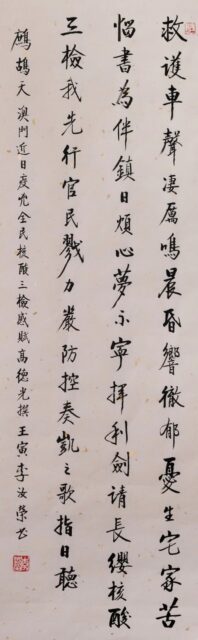 救護車聲凄厲鳴晨昏響徹郁憂生宅家苦
惱書為伴鎮日煩心夢不寧揮利劍請長纓核酸
三檢我先行官民戮力嚴防控奏凱之歌指日聽
鷓鴣天 澳門近日疫兇全民核酸三檢感賦 高德光撰 王寅 李汝榮书